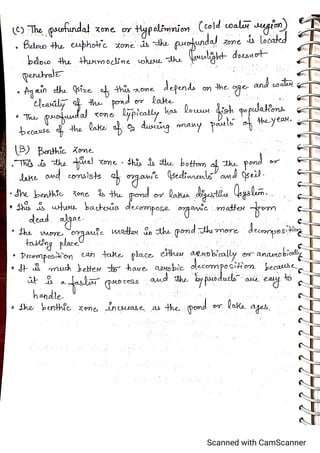 (C) The profundal zone or Hypolimnion (cold water region)
• Below the euphotic zone is the profundal zone is located
below the thermocline where the sunlight doesnot
penetrate
• Again the size of this zone depends on the age and water
clearity of the pond or lake
• The profundal zone typically has lower fish populations
because of the lake of O2 during many parts of the year.
(D) Benthic Zone
• This is the final zone. this is the bottom of the pond or
lake and consists of organic sediments and soil.
• The benthic zone is the pond or lakes digestive system.
• This is where bacteria decompose organic matter from
dead algae
• the more organic matter in the pond the more decomposition
taking place
• Decomposition can take place either aerobically or anaerobically
• It is much better to have aerobic decomposition because
it is a faster process and the byproducts are easy to
handle.
• the benthic zone increase as the pond or lake ages.
Scanned with CamScanner